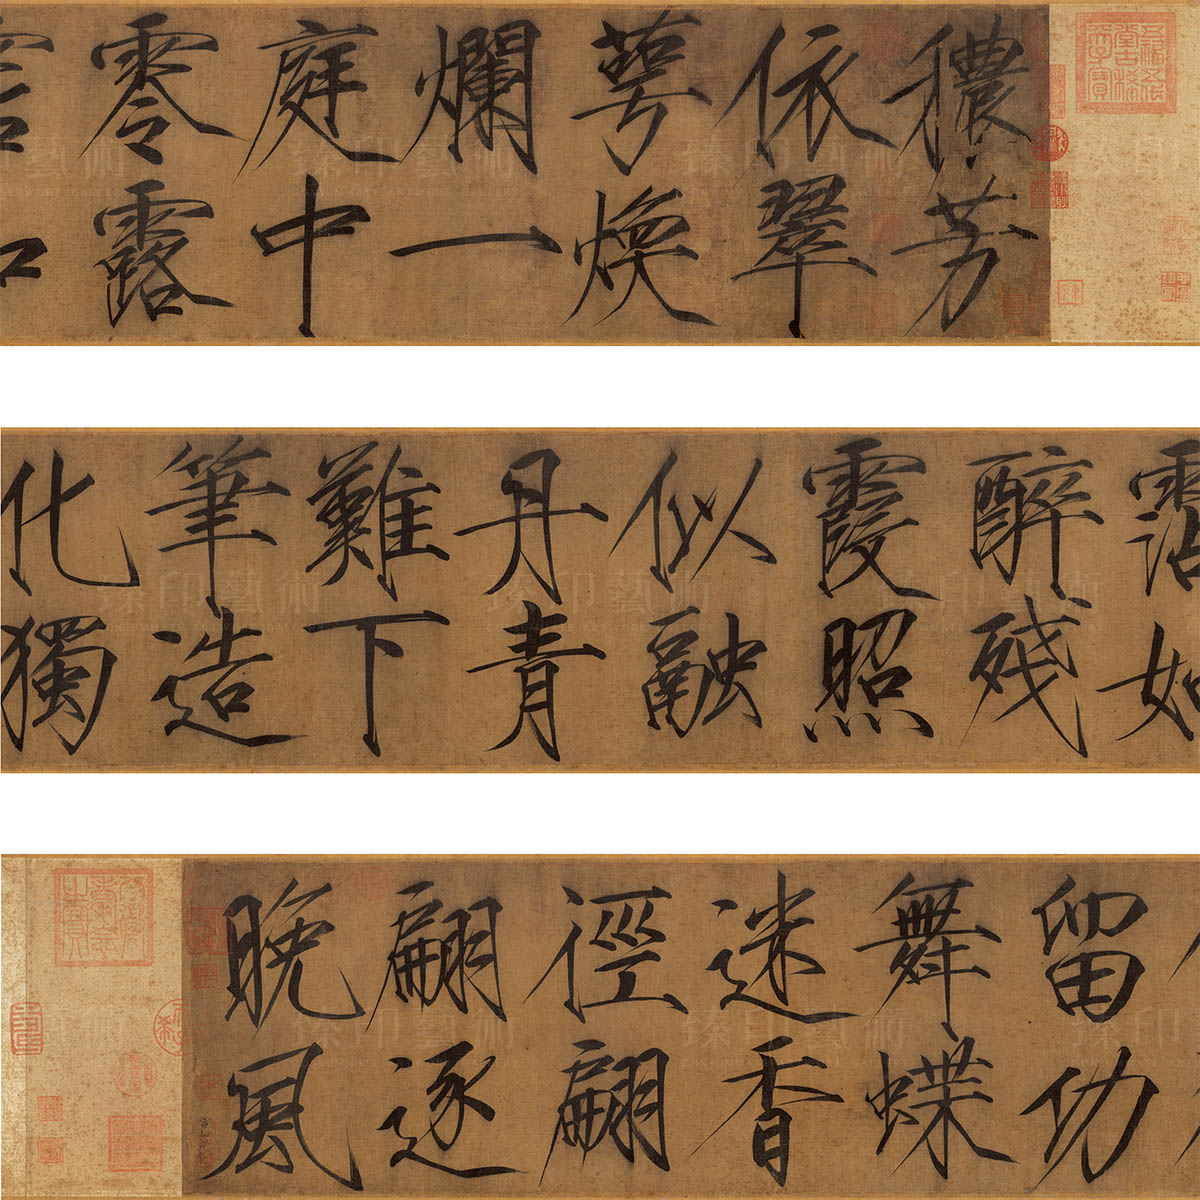 穠芳
依翠
萼煥
爛一
庭中
零露
霑如
醉殘
霞照
似融
丹青
難下
筆造
化獨
留功
舞蝶
迷香
徑翩
翩逐
晚風
臻印藝術